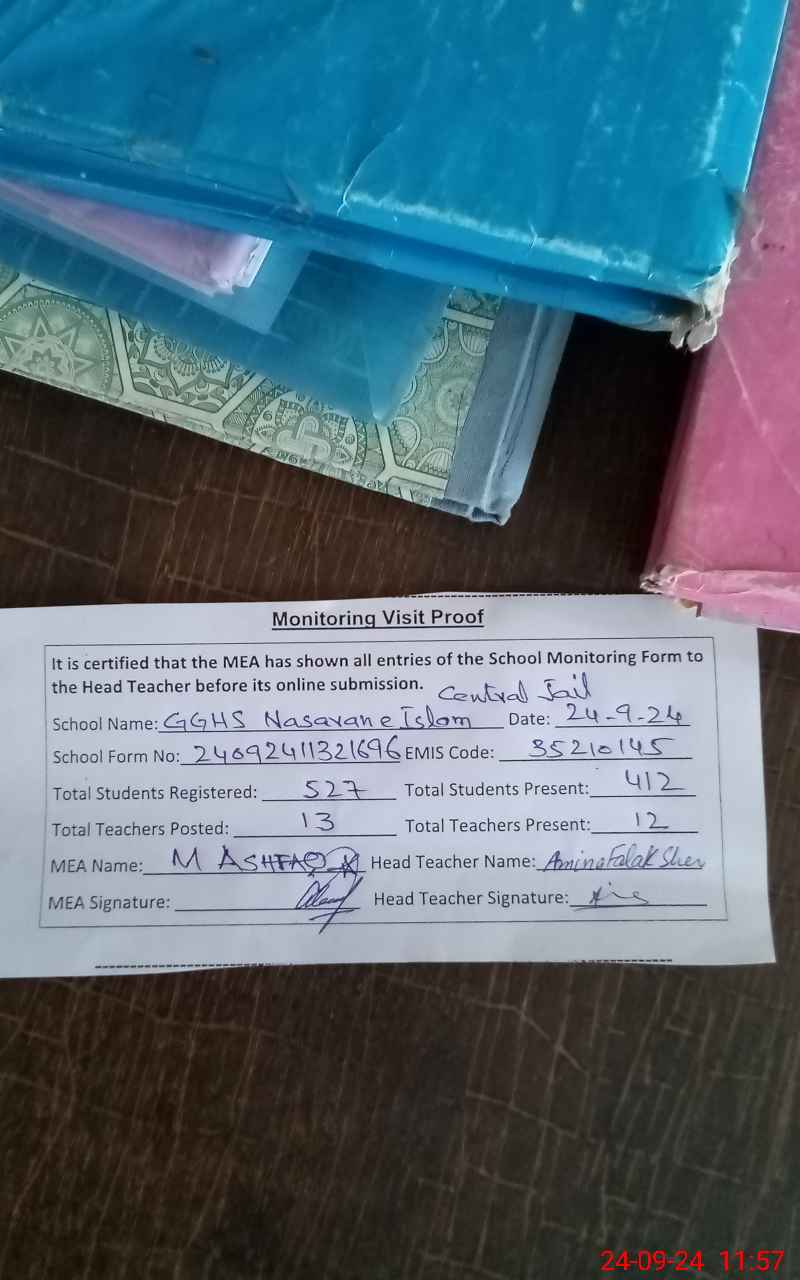 Monitoring Visit Proof
It is certified that the MEA has shown all entries of the School Monitoring Form to
the Head Teacher before its online submission.
Central Jail
School Name: GGHS Nasarane Islam Date: 24-9-24
School Form No: 24092411321696 EMIS Code: 35210145
Total Students Registered: 527 Total Students Present: 412
Total Teachers Posted: 13 Total Teachers Present: 12
MEA Name: M ASHFAQ Head Teacher Name: Amina Falak Sher
MEA Signature: Head Teacher Signature:
24-09-24 11:57